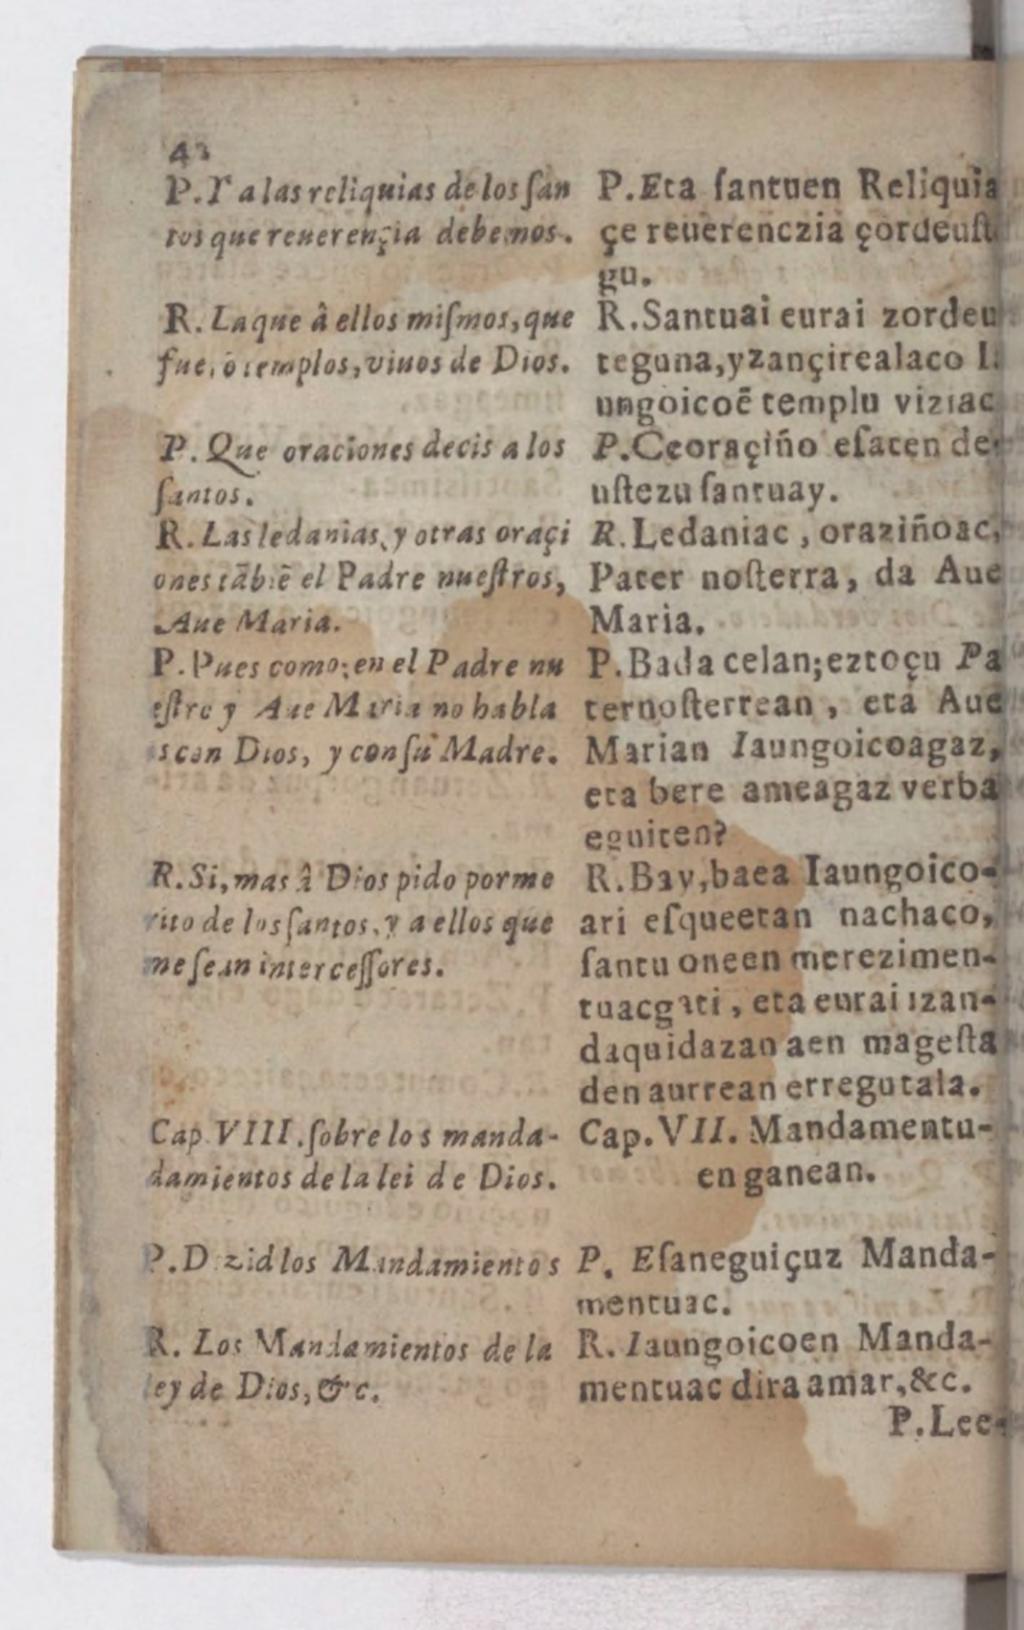 P. Y a las reliquias de los ſan
tos que reuerençia debemos.
R. La que â ellos miſmos, que
fueró templos, viuos de Dios.
P. Que oraciones decis a los
ſantos.
R. Las ledanias, y otras oraçi
ones tãbiẽ el Padre nueſtros,
Aue Maria.
P. Pues como; en el Padre nu
eſtro y Aue Maria no habla
is con Dios, y con ſu Madre.
R. Si, mas â Dios pido por me
rito de los ſantos, y a ellos que
me ſean interceſſores.
Cap. VIII. ſobre los manda-
damientos de la lei de Dios.
P. Dezid los Mandamientos
R. Los Mandamientos de la
ley de Dios, &c.
P. Eta ſantuen Reliquia
çe reuerenczia çordeuſte
gu.
R. Santuai eurai zordeu
teguna, yzançirealaco I
ungoicoẽ templu viziac
P. Ceoraçiño eſaten de-
uſtezu ſantuay.
R. Ledaniac, oraziñoac,
Pater noſterra, da Aue
Maria.
P. Bada celan; eztoçu Pa
ternoſterrean, eta Aue
Marian Iaungoicoagaz,
eta bere ameagaz verba
eguiten?
R. Bay, baea Iaungoico-
ari eſqueetan nachaco,
ſantu oneen merezimen-
tuacgati, eta eurai izan-
daquidazan aen mageſta
den aurrean erregutala.
Cap. VII. Mandamentu-
en ganean.
P. Eſaneguiçuz Manda-
mentuac.
R. Iaungoicoen Manda-
mentuac dira amar, &c.
P. Lee-